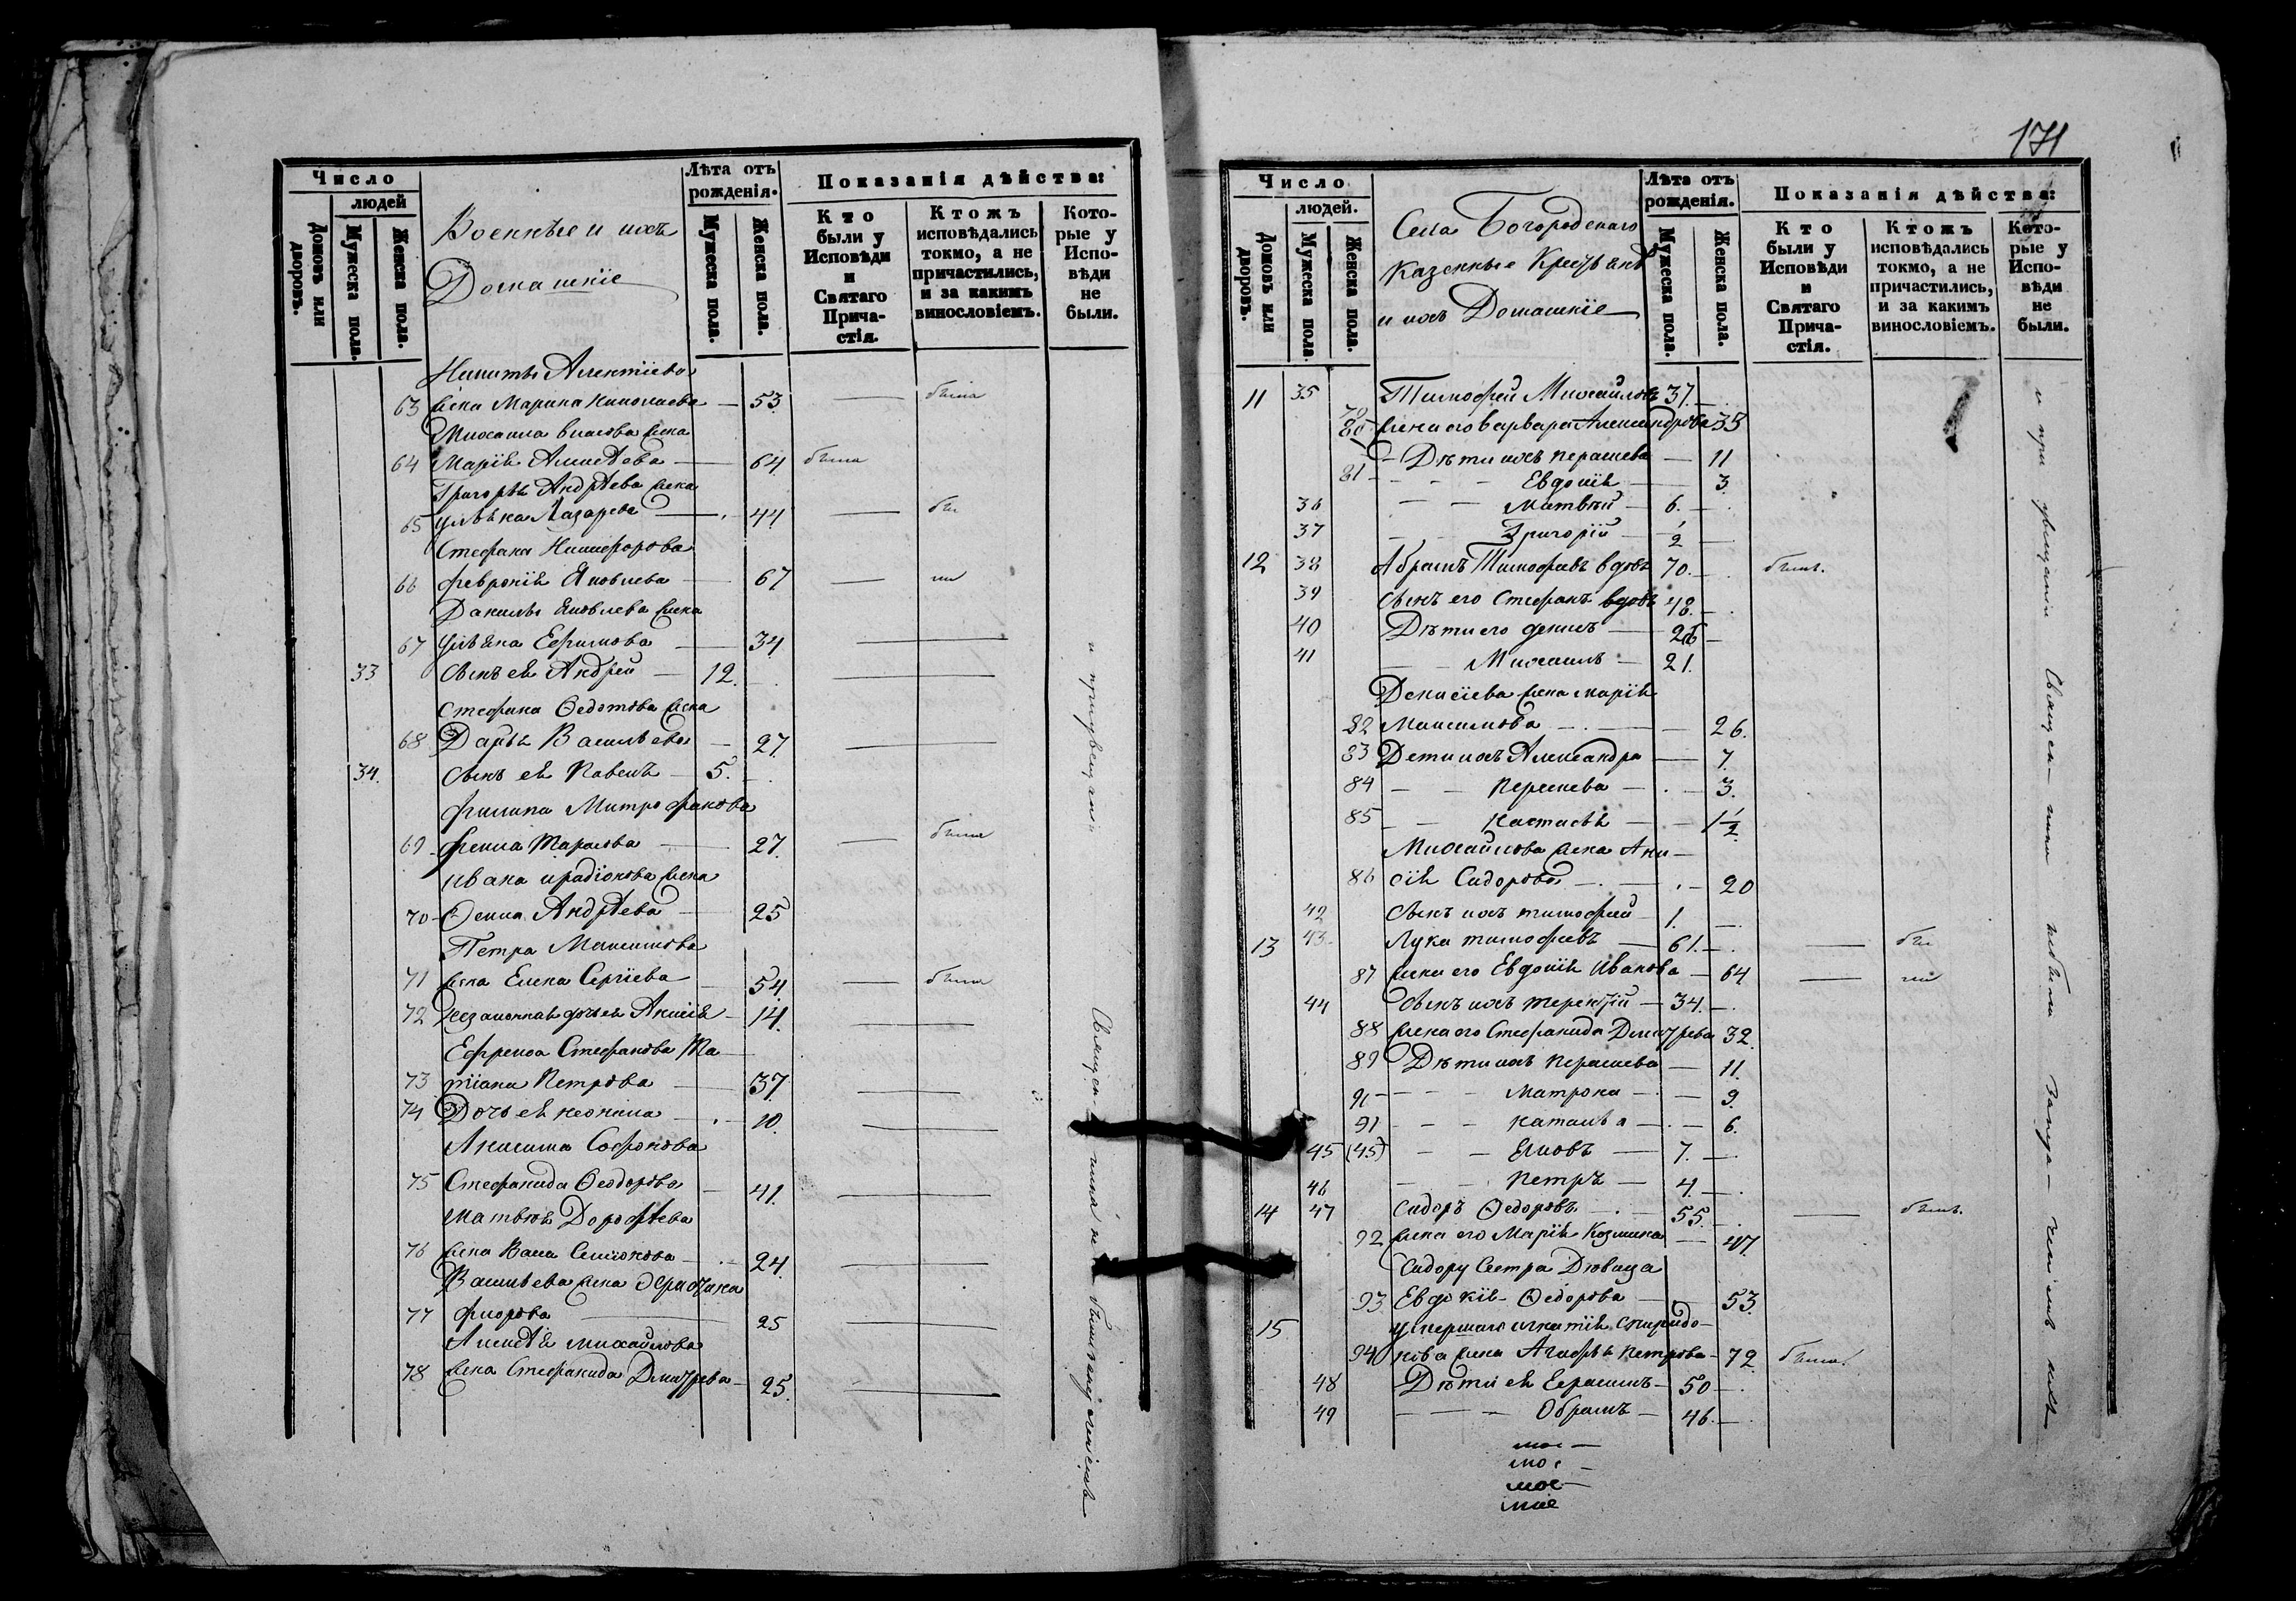 Число
людей
Домовъ или дворовъ.
Мужеска пола.
Женска пола.
Военные и ихъ
Домашніе
Лѣта отъ рожденія.
Мужеска пола.
Женска пола.
Показанія дѣйства:
Кто были у Исповѣди и Святаго Причастія.
Ктожъ исповѣдались токмо, а не причастились, и за какимъ винословіемъ.
Которые у Исповѣди не были.
Никиты Алексіева
63 жена Марина Николаева — 53. — была
Михаила Власова жена
64 Марія Алексѣева — 64 была
Григорья Андрѣева жена
65 Ульяна Лазарева — 44
Стефана Никифорова
66 Февронія Яковлева — 67 —
Данилы Яковлева жена
67 Ульяна Ефимова — 34 —
33 Сынъ ея Андрей — 12. —
Стефана Ѳедотова жена
68 Дарья Васильева — 27. —
34. Сынъ ея Павелъ — 5. —
Филипа Митрофанова
69 Фекла Тарасова — 27. — была
Ивана Иродіонова жена
70 Ѳекла Андрѣева — 25
Петра Максимова
71 жена Елена Сергіева — 54. — была
72 незаконная дочь ея Аксиія — 14. —
Ефрема Стефанова Та-
73 тіана Петрова — 37 —
74 Дочь ея Неонила — 10. —
Акисима Софронова
75 Стефанида Ѳеодорова — 41. —
Матвея Дорофѣева
76 жена Васса Симіонова — 24. —
Васильева жена
77 Фролова — 25 —
Алексѣя Михайлова
78 жена Стефанида Дмитрева — 25. —
171
Число
людей.
Домовъ или дворовъ.
Мужеска пола.
Женска пола.
Села Богородскаго
Казенные Крестьяне
и ихъ Домашніе
Лѣта отъ рожденія.
Мужеска пола.
Женска пола.
Показанія дѣйства:
Кто были у Исповѣди и Святаго Причастія.
Ктожъ исповѣдались токмо, а не причастились, и за какимъ винословіемъ.
Которые у Исповѣди не были.
11 35 Тимофей Михайловъ 37. —
79
80 жена его Варвара Александрова 35
— Дѣти ихъ Парасева — 11
81 — — — Евдокія — 3.
36 — — Матвѣй — 6. —
37 — — Григорій — 1/2 —
12 38 Абрамъ Тимофѣевъ вдовъ 70. — былъ.
39 Сынъ его Стефанъ вдовъ 48. —
40 Дѣти его Денисъ — 26 —
41 — — Михаилъ — 21.
Денисіева жена Марія
82 Максимова — 26.
83 Дети ихъ Александра — 7.
84 — — Парасева — 3.
85 — — Настасья — 1 1/2
Михайлова жена Ак-
86 сія Сидорова — 20
42 Сынъ ихъ Тимофей — 1. —
13 43 Лука Тимофѣевъ — 61. — —
87 жена его Евдокія Иванова — 64 —
44 Сынъ ихъ Терентій — 34. —
88 жена его Стефанида Дмитрева 32.
89 Дѣти ихъ Парасева — 11.
91 — — — Матрона — 9.
91 — — — Наталья — 6.
45 (45) — — Яковъ — 7. —
46 — — Петръ — 4. —
14 47 Сидоръ Ѳедоровъ — 55. — — былъ.
92 жена его Марія Козмина — 47.
Сидору Сестра Дѣвица
93 Евдокія Ѳедорова — 53.
15 умершаго Игнатія Спиридо-
94 нова жена Агафья Петрова — 72 была.
48 Дѣти ея Герасимъ — 50 —
49 — — — Обрамъ — 46. —